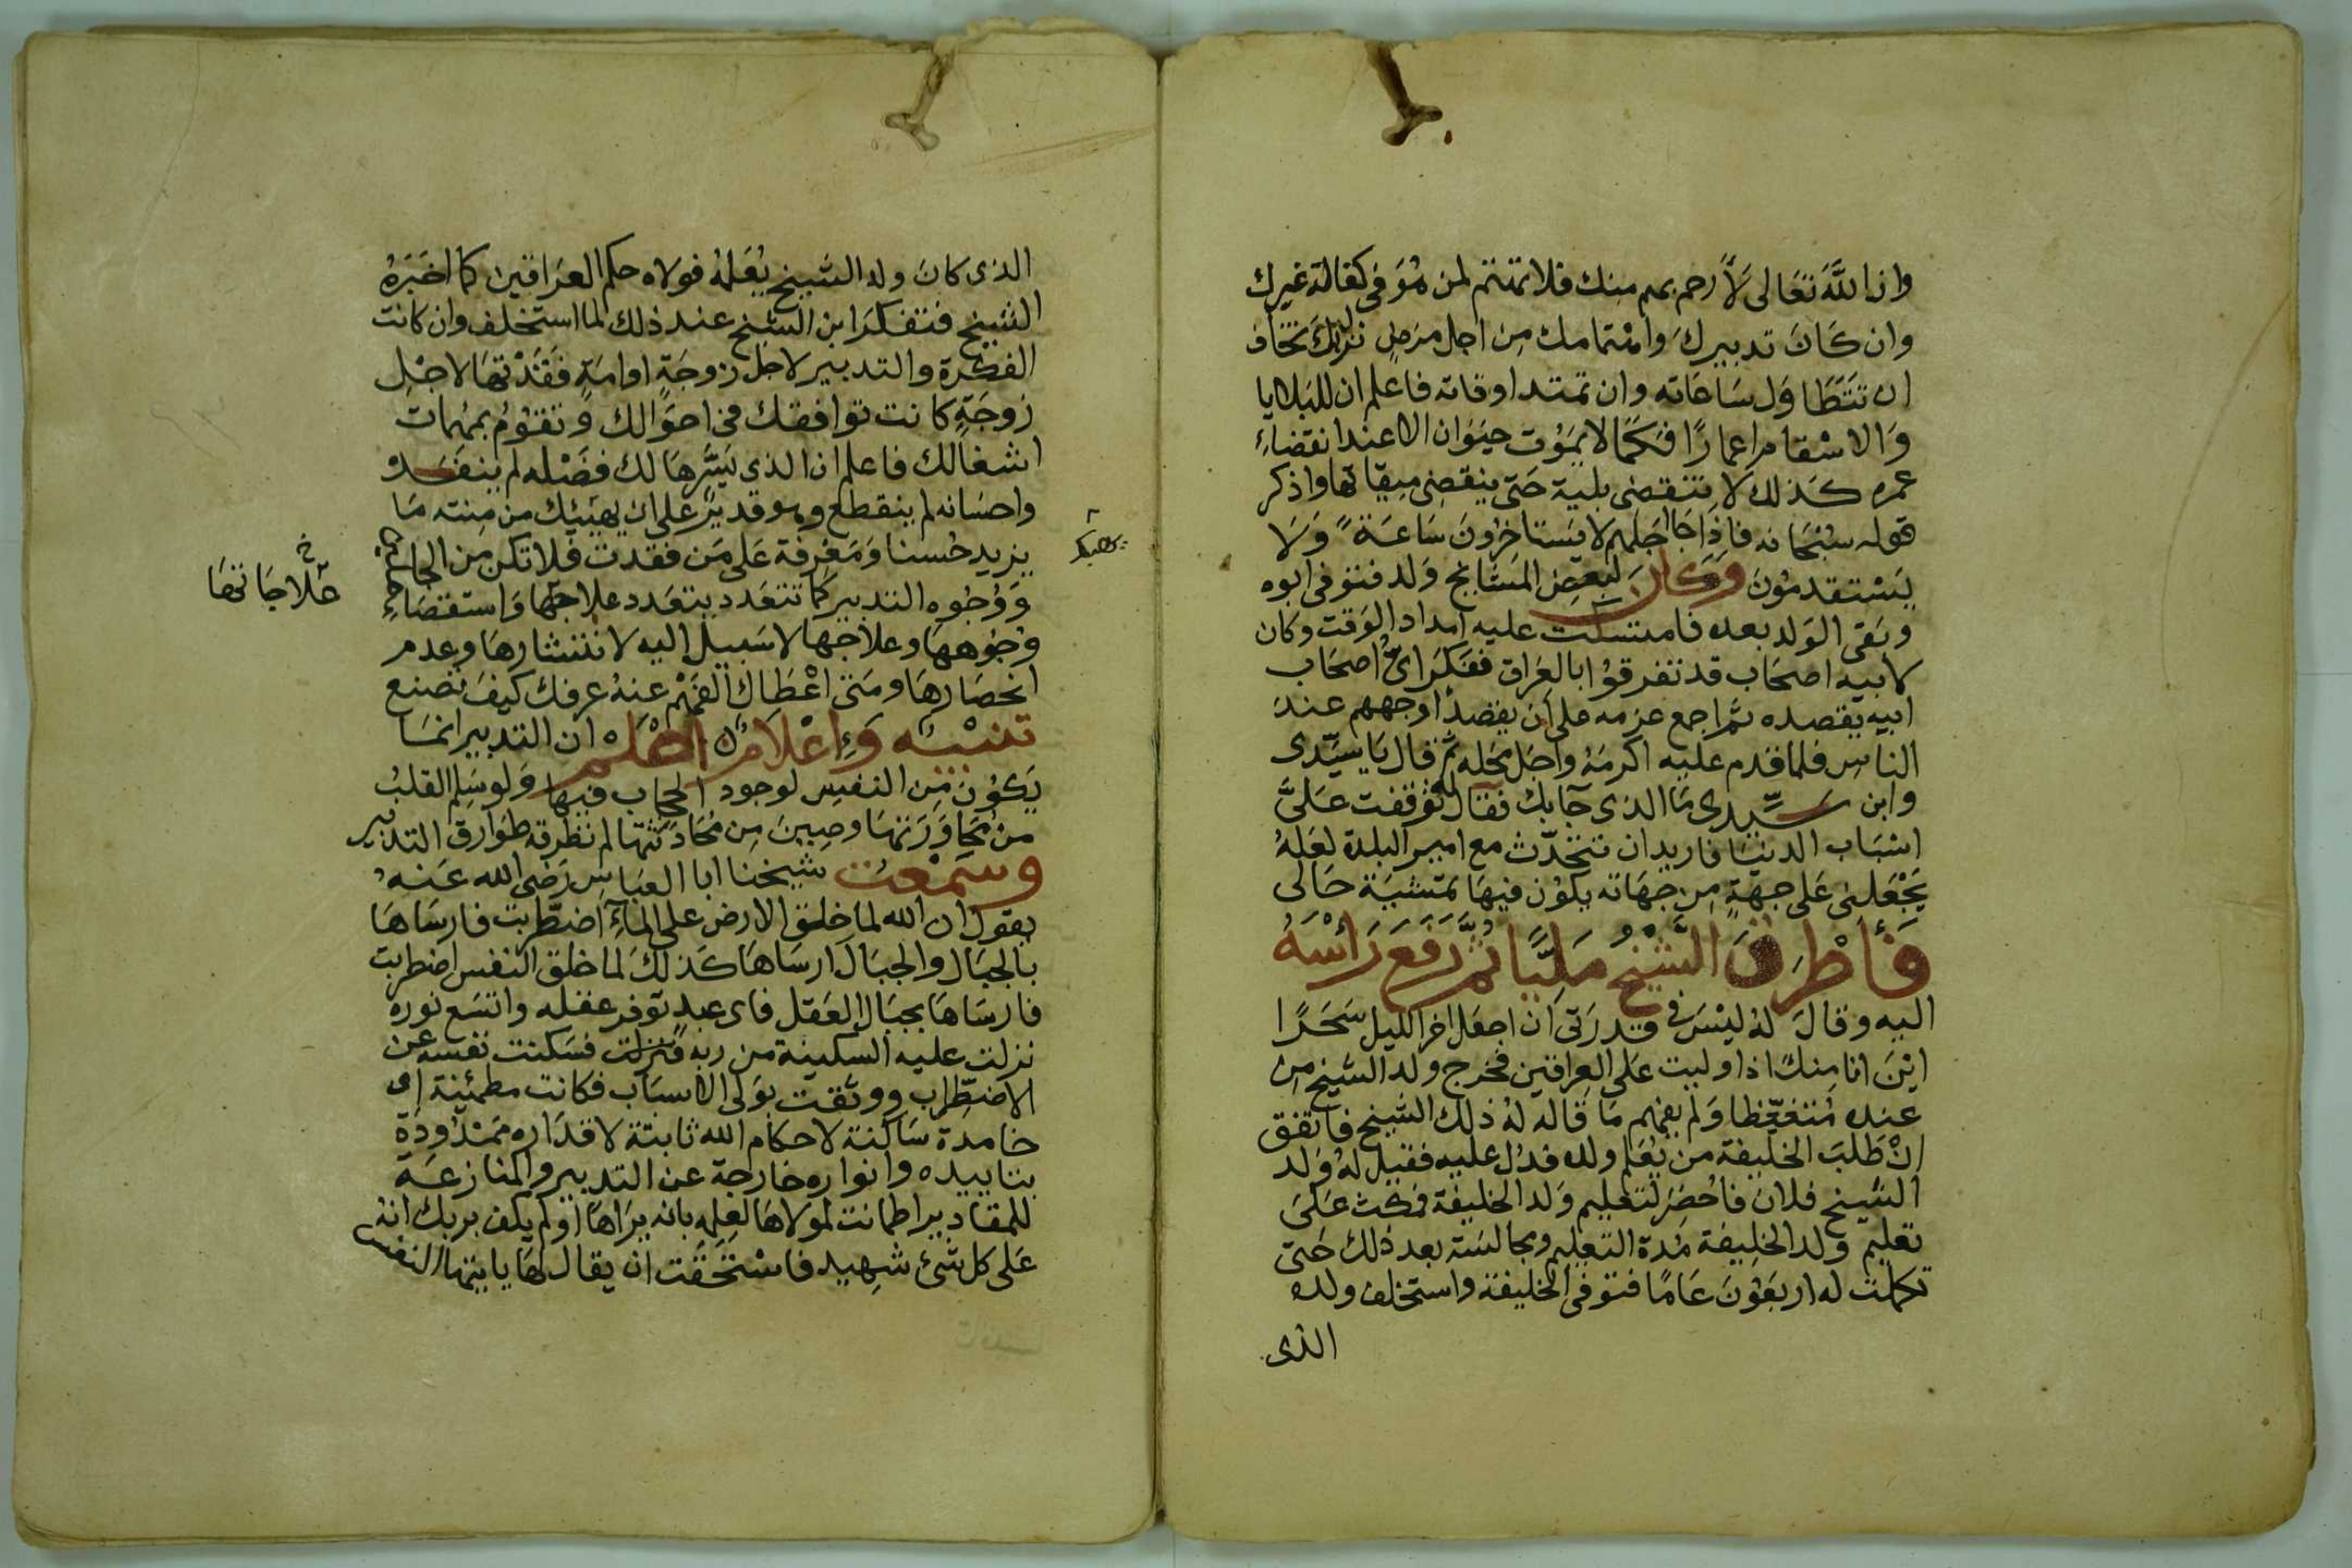 وان اللَّهَ تعَالى لَأَرحم بهم منك فلا تهتم لمن هُوَ فى كفالة غيرك
وان كَانَ تدبيركَ واهتمامك مِن اجل مرضٍ نزل بك تخاف
ان تتَطَاوَل سَاعَاته وان تمتد اوقاته فاعلم ان للبلايا
وَالاسْقام اعمارًا فكَمَا لا يمَوُت حيَوَان الا عند انقضاءِ
عمره كذلك لا تنقضى بلية حَتى ينقضِى ميقاتها واذكر
قوله سبْحَانه فاذا جَا اجَلهم لا يَستاخِرُونَ سَاعَة وَلَا
يَسْتقدمُونَ وَكَانَ لبَعضِ المشَايخ وَلد فتوفى ابوه
وبَقى الوَلد بعده فامتسكت عليه امداد الوَقت وكان
لابيه اصحَاب قد تفرقوُا بالعِرَاق ففكَرَ اىُّ اصحَاب
ابيه يَقصده ثم اجمع عزمه على أن يقصدَ أوجههم عندَ
الناسِ فلما قدم عليه اكرمَهُ واجَل محَله ثم قال يَا سيّدى
وابن سَيّدى مَا الذى جَآ بك فقال له توقفت عَلىَّ
اسْبَاب الدنيَا فاريد ان تتحَدّث مع امير البلدة لعَلهُ
يَجْعَلنِى عَلى جهَةٍ مِن جهَاته يكوُن فيهَا تمَشيَة حَالى
فَأَطْرَقَ الشَّيْخُ مَليًّا ثُمَّ رَفعَ رَأْسَهُ
اليه وقالَ لهُ ليْسَ فى قدرَتى أن اجعَل اخر الليل سَحَرًا
ايْنَ انا مِنكَ اذا وليت عَلى العِراقين فخرج ولد الشيخ من
عنده مُتغيّظا وَلم يفهم مَا قاله لهُ ذلك الشيخ فاتفق
انْ طَلبَ الخليفة من يُعَلم ولده فدُل عليه فقيل لهُ وَلد
الشيخ فلان فاحْضرَ لتعليم وَلد الخليفة فمكث عَلىَ
تعليم ولد الخلِيفة مُدة التعليم ومجالسَته بعد ذلك حَتى
تكملت له اربَعوُنَ عَامًا فتوفى الخليفة واستخلف ولده
الذى
الذى كانَ ولد الشيخ يُعَلمُهُ فولاه حكم العرَاقين كما اخبَرَهُ
الشيخ فتفكرَ ابن الشيخ عند ذلك لما استخلف وان كانت
الفكرَة والتدبير لاجل زوجَةٍ او امَةٍ فقدْتهَا لاجْل
زوجَةٍ كانت توافقك فى احوَالك وَتقوُم بمهمات
اشغَالك فاعلم ان الذى يَسَّرهَا لك فضْله لم ينفَد
واحسَانه لم ينقطع وهو قديرٌ على ان يهيئك من مِنته مَا
يزيد حُسنا وَمَعْرفة عَلى مَن فقدت فلا تكن مِن الجاهلين
وَوُجُوه التدبير كمَا تتعَدد بتعَدد علاجهَا وَاستقصَاءِ
علاجاتهَا
وُجُوههَا وعلاجها لا سَبيل اليه لانتشارهَا وعدم
انحصَارهَا ومَتى اعْطَاكَ الفَهْم عنهُ عرفك كيفَ تصنع
تنبْيْهٌ وَإعْلَامٌ اعْلم ان التدبير انمَا
يَكوُن مِن النفس لوجود الحجَاب فيهَا وَلو سَلم القلبُ
منْ مجَاوَرَتهَا وصِينَ مِن محَادثتهَا لم تطرقه طوَارق التدبير
وَسَمْعتُ شيخنا ابا العبَاسِ رَضى الله عَنهُ
يقول ان الله لما خلق الارض على الماءِ اضطربت فارسَاهَا
بالجبَال والجبَالَ ارسَاهَا كذلكَ لما خلق النفس اضطربت
فارسَاهَا بجبَال العَقل فاى عبدٍ توَفر عقله واتسَع نوره
نزلت عليه السكينة من ربه فنزلت فسَكنت نفسه عن
الاضطراب ووثقت بوَلى الاسبَاب فكانت مطمئنة اى
خامدة سَاكنة لاحكام الله ثابتة لاقدَاره ممدُودة
بتاييده وانواره خارجة عن التدبير والمنازعَة
للمقادير اطمانت لمولاهَا لعِلمِه بانه يرَاها أوَلم يكف بربك انهُ
عَلى كل شئ شهيد فاستحَقت ان يقال لهَا يا ايتها النفس